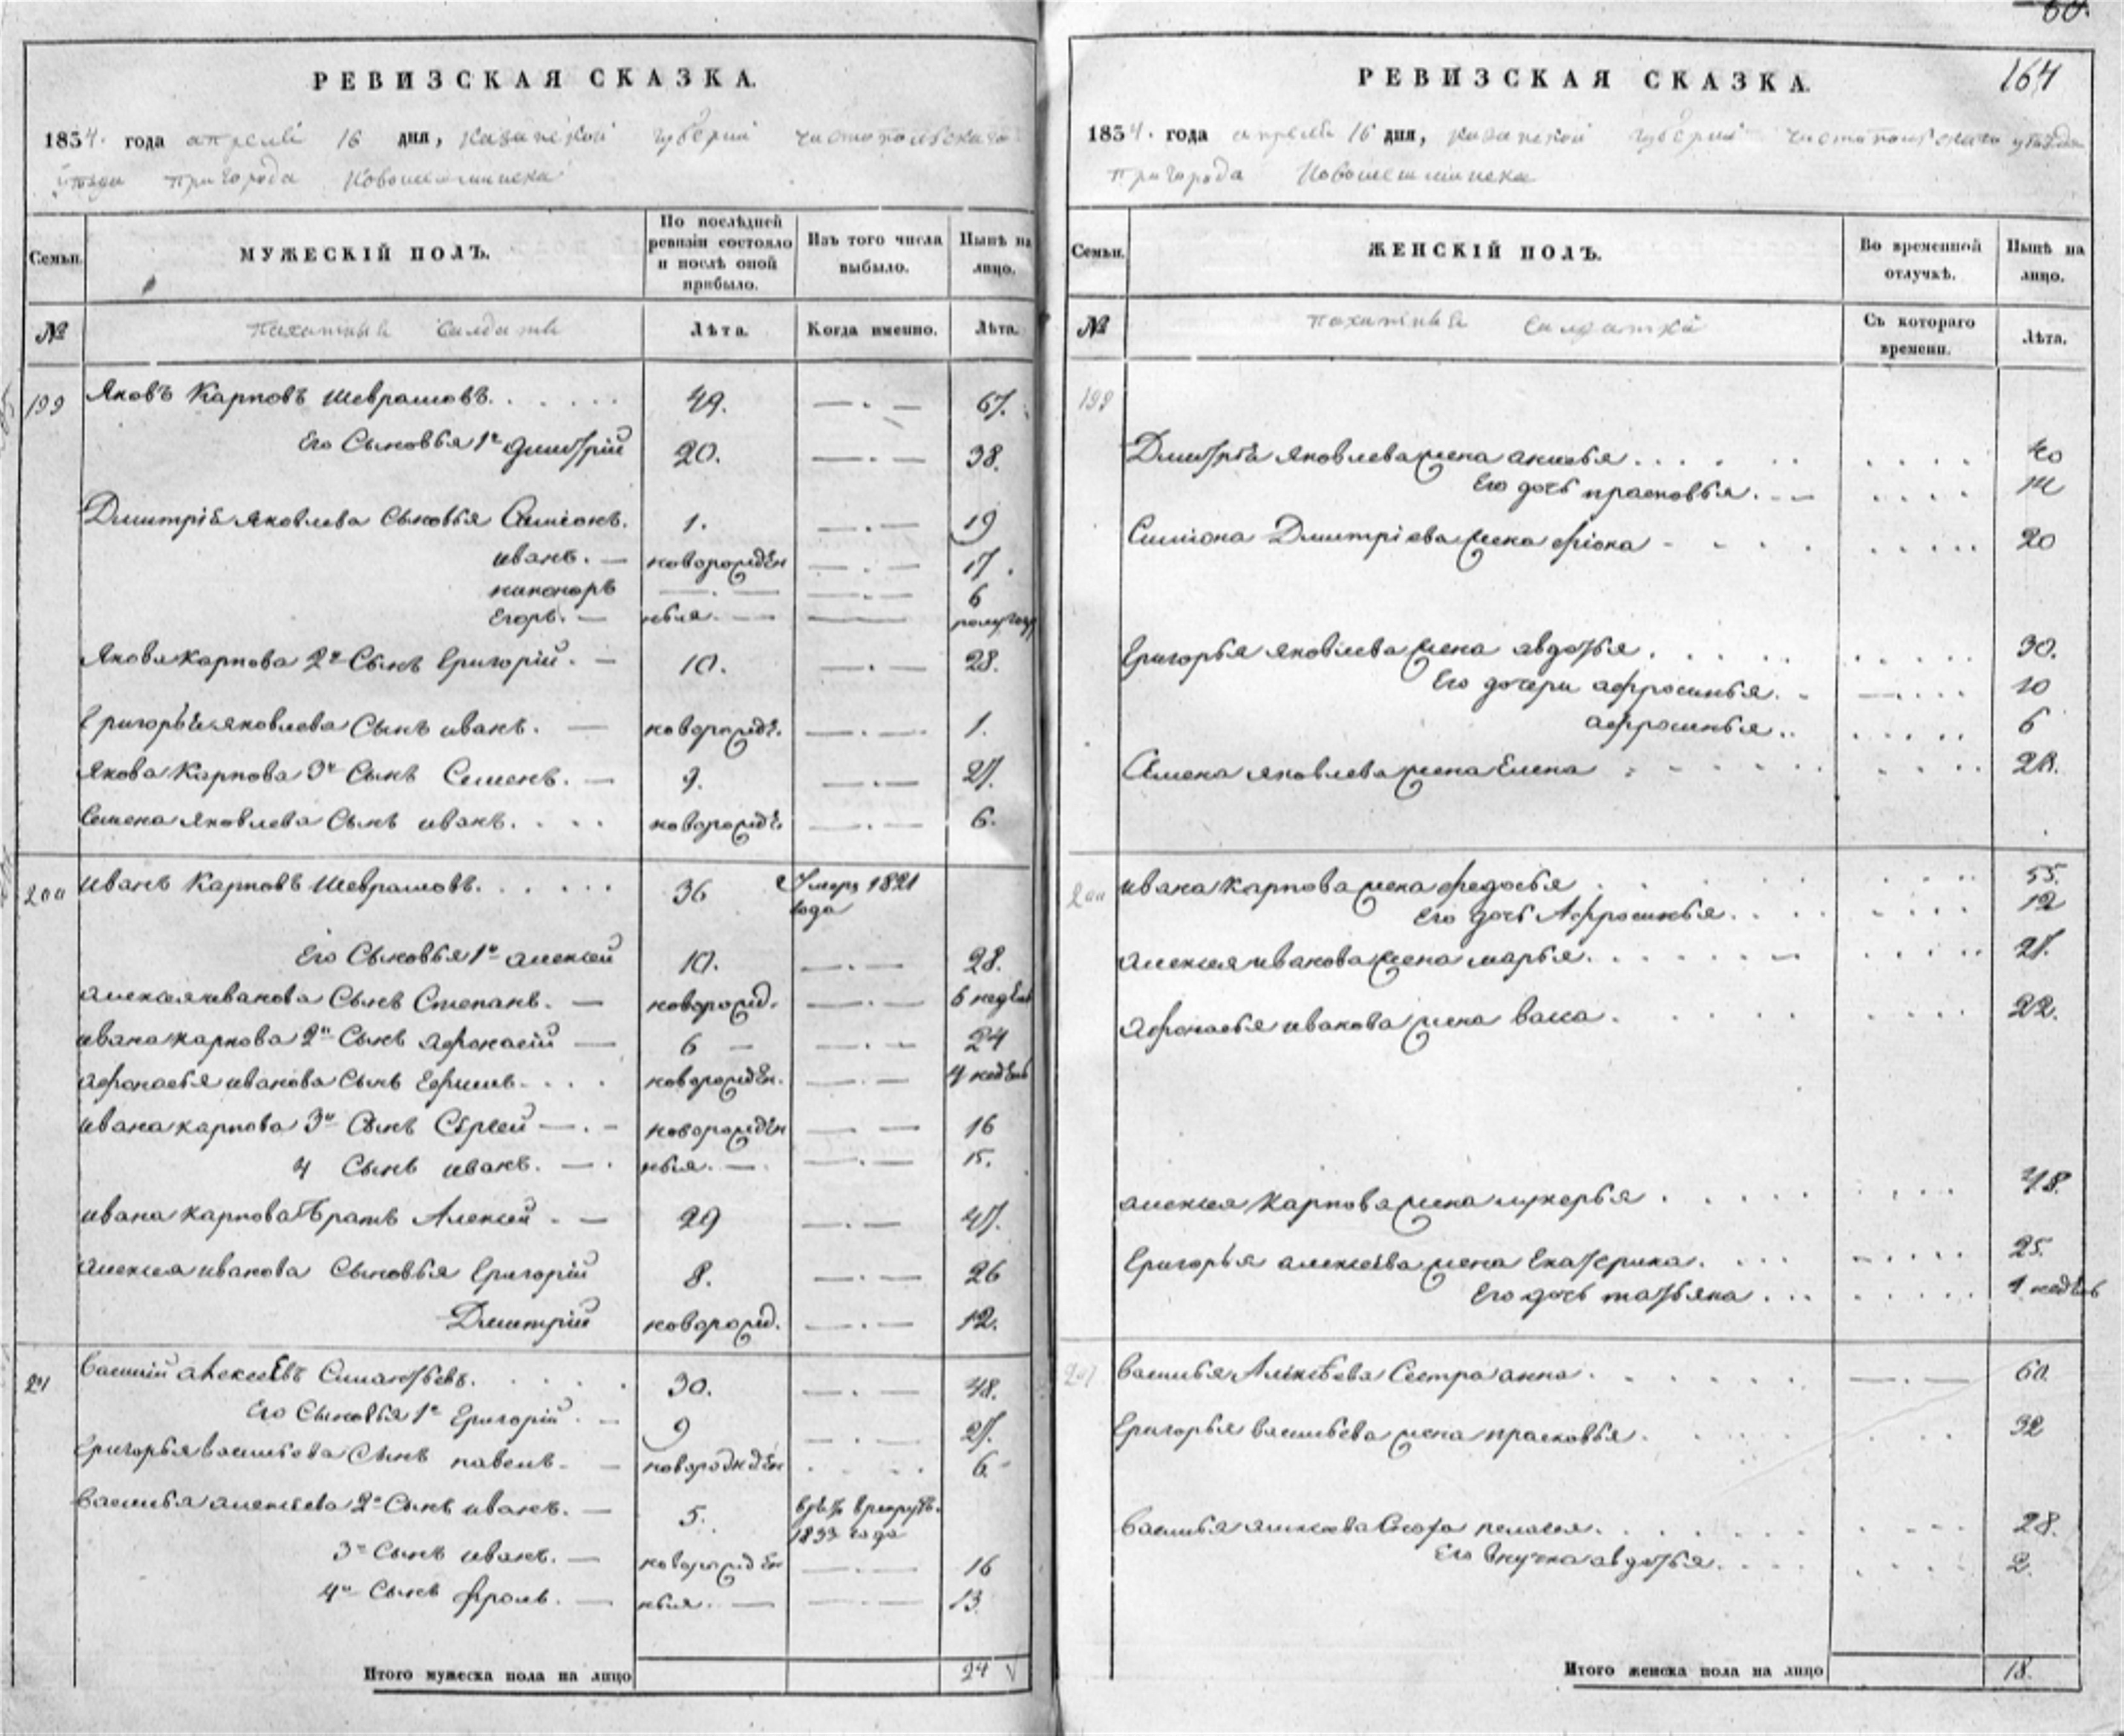 60.
РЕВИЗСКАЯ СКАЗКА.
1834. года апреля 16 дня, казанской губернии чистопольскаго
уезда пригорода Новошешминска
Семьи.
МУЖЕСКІЙ ПОЛЪ.
По послѣдней ревизіи состояло и послѣ оной прибыло.
Изъ того числа выбыло.
Нынѣ на лицо.
№
Пахатныя Салдаты
Лѣта.
Когда именно.
Лѣта.
199 Яковъ Карповъ Шеврашовъ. 49. 67.
Его Сыновья 1й Дмитрій 20. 38.
Дмитрія Яковлева Сыновья Симіонъ. 1. 19
иванъ. новорожден 17.
никоноръ 6
Егоръ. ныя. полугод
Якова Карпова 2й Сынъ Григорій. 10. 28.
Григорья яковлева Сынъ иванъ. новорожде. 1.
якова Карпова 3й Сынъ Семенъ. 9. 27.
Семена яковлева Сынъ иванъ. новорожде. 6.
200 иванъ Карповъ Шеврашовъ. 36 умеръ 1821 года
Его Сыновья 1й алексей 10. 28.
алексея иванова Сынъ Степанъ. новорожд. 6 недель
ивана карпова 2й Сынъ афонасій 6 24
афонасья иванова Сынъ Ефимъ. новорожден. 4 недель
ивана карпова 3й Сынъ Сергей новорожден 16
4 Сынъ иванъ. ныя. 15.
ивана карпова братъ Алексей 29 47.
алексея иванова Сыновья Григорій 8. 26
Дмитрій новорожд. 12.
21 Василій алексеевъ 30. 48.
Его Сыновья 1й Григорій. 9 27.
Григорья васильева Сынъ павелъ. новорожден 6.
Василья алексеева 2й Сынъ иванъ. 5. взятъ врекруты. 1833 года
3й Сынъ иванъ. новорожден 16
4й Сынъ фролъ. ныя. 13.
Итого мужеска пола на лицо 24
РЕВИЗСКАЯ СКАЗКА.
164
1834. года апреля 16 дня, казанской губернии чистопольскаго уезда
пригорода Новошешминска
Семьи.
ЖЕНСКІЙ ПОЛЪ.
Во временной отлучкѣ.
Нынѣ на лицо.
№
пахатныя Салдатки
Съ котораго времени.
Лѣта.
199
Дмитрія яковлева жена аксинья. 40
Его дочь прасковья. 14
Симіона Дмитріева жена фіона 20
Григорья яковлева жена авдотья. 30.
Его дочери афросинья. 10
афросинья.. 6
Семена яковлева жена Елена 28.
200 ивана карпова жена федосья 55.
Его дочь Афросинья. 12
алексея иванова жена марья. 27.
афонасья иванова жена васса. 22.
алексея карпова жена лукерья. 48.
Григорья алексеева жена Екатерина. 25.
Его дочь татьяна. 4 недель
201 василья Алексеева Сестра анна. 60.
Григорья васильева жена прасковья. 32
василья алексеева Сноха пелагея. 28.
Его внучка авдотья. 2.
Итого женска пола на лицо 18.